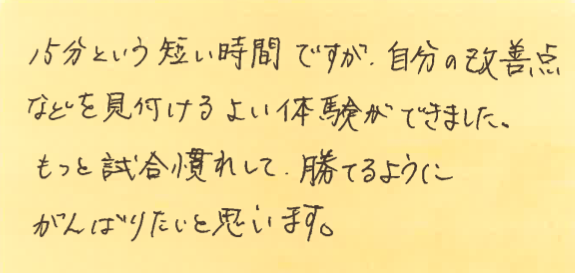 15分という短い時間ですが、自分の改善点
などを見付けるよい体験ができました。
もっと試合慣れして、勝てるように
がんばりたいと思います。